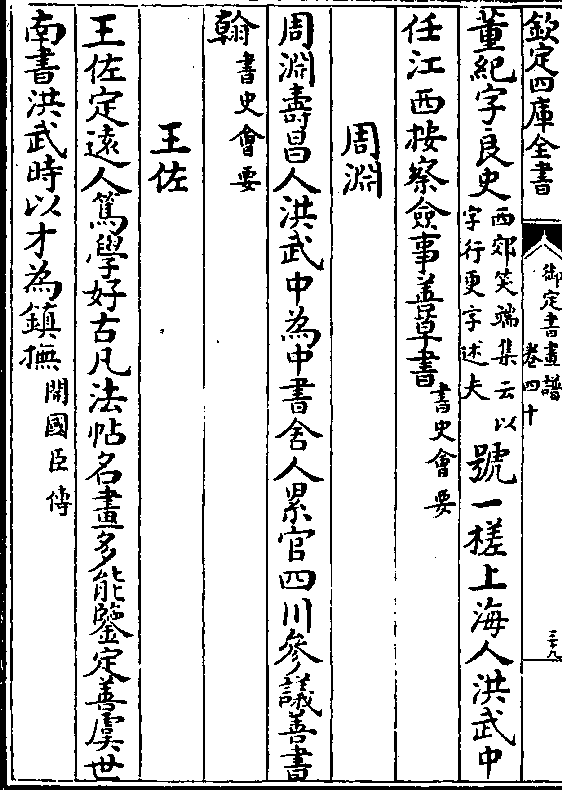 欽定四庫全書
御定書畫譜
卷四十
董紀字良史西郊笑端集云以字行更字述夫號一槎上海人洪武中
任江西按察僉事善草書書史會要
周淵
周淵壽昌人洪武中為中書舍人累官四川參議善書
翰書史會要
王佐
王佐定遠人篤學好古凡法帖名畫多能鑒定善虞世
南書洪武時以才為鎮撫開國臣傳